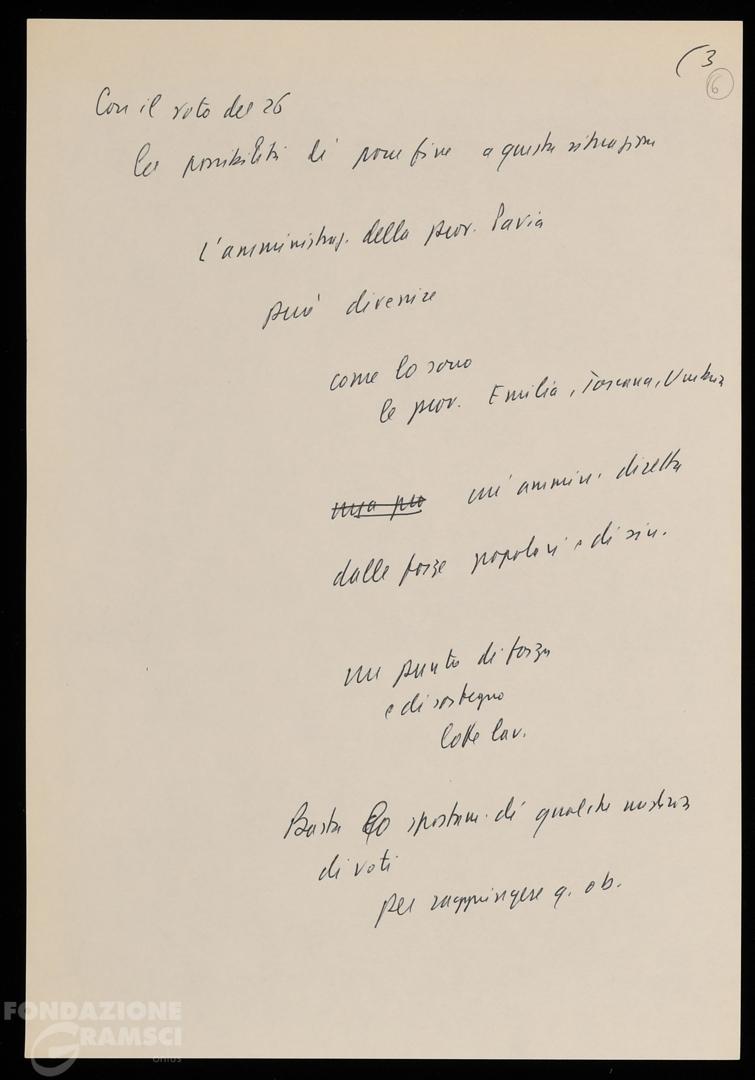 (3
6
Con il voto del 26
la possibilità di porre fine a questa situazione
L'amministraz. della prov. Pavia
può divenire
come lo sono
le prov. Emilia, Toscana, Umbria
un'ammin. diretta
dalle forze popolari e di sin.
un punto di forza
e di sostegno
lotte lav.
Basta lo spostam. di qualche
di voti
per raggiungere q. ob.
FONDAZIONE
GRAMSCI
onlus